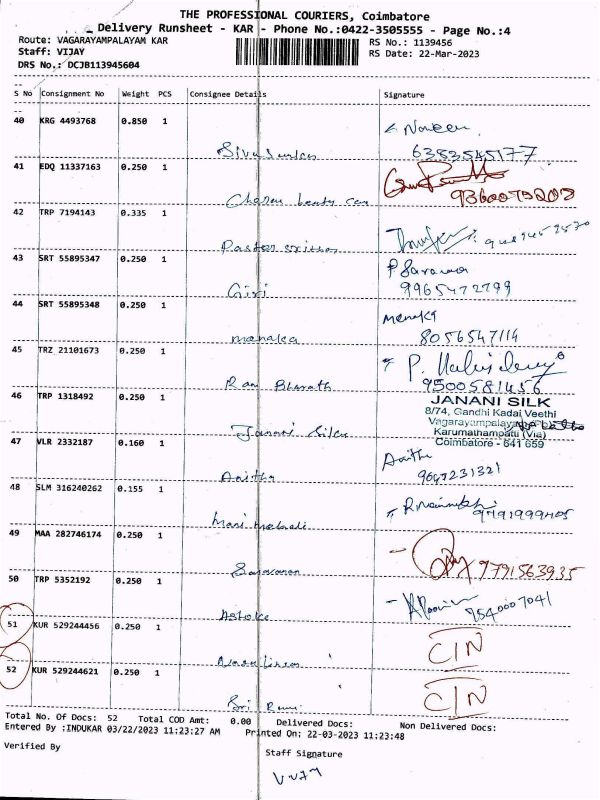 THE PROFESSIONAL COURIERS, Coimbatore
Delivery Runsheet - KAR - Phone No.:0422-3505555 - Page No.:4
Route: VAGARAYAMPALAYAM KAR
RS No.: 1139456
Staff: VIJAY
RS Date: 22-Mar-2023
DRS No.: DCJB113945604
S No Consignment No Weight PCS Consignee Details Signature
40 KRG 4493768 0.850 1
Naveen
6383545177
41 EDQ 11337163 0.250 1
42 TRP 7194143 0.335 1
Pastor
43 SRT 55895347 0.250 1
P Sarava
Giri
9965472799
44 SRT 55895348 0.250 1
Menaka
menaka
8056547114
45 TRZ 21101673 0.250 1
Ram Bharath
9500581456
46 TRP 1318492 0.250 1
JANANI SILK
8/74, Gandhi Kadai Veethi
Karumathampatti (Via)
Janani Silks
Coimbatore - 641 659
47 VLR 2332187 0.160 1
Anitha
Anitha
9647231321
48 SLM 316240262 0.155 1
49 MAA 282746174 0.250 1
Saravanan
9791563935
50 TRP 5352192 0.250 1
Ashoke
9540007041
51 KUR 529244456 0.250 1
C/N
52 KUR 529244621 0.250 1
C/N
Sri Rani
Total No. Of Docs: 52 Total COD Amt: 0.00 Delivered Docs: Non Delivered Docs:
Entered By :INDUKAR 03/22/2023 11:23:27 AM Printed On: 22-03-2023 11:23:48
Verified By
Staff Signature